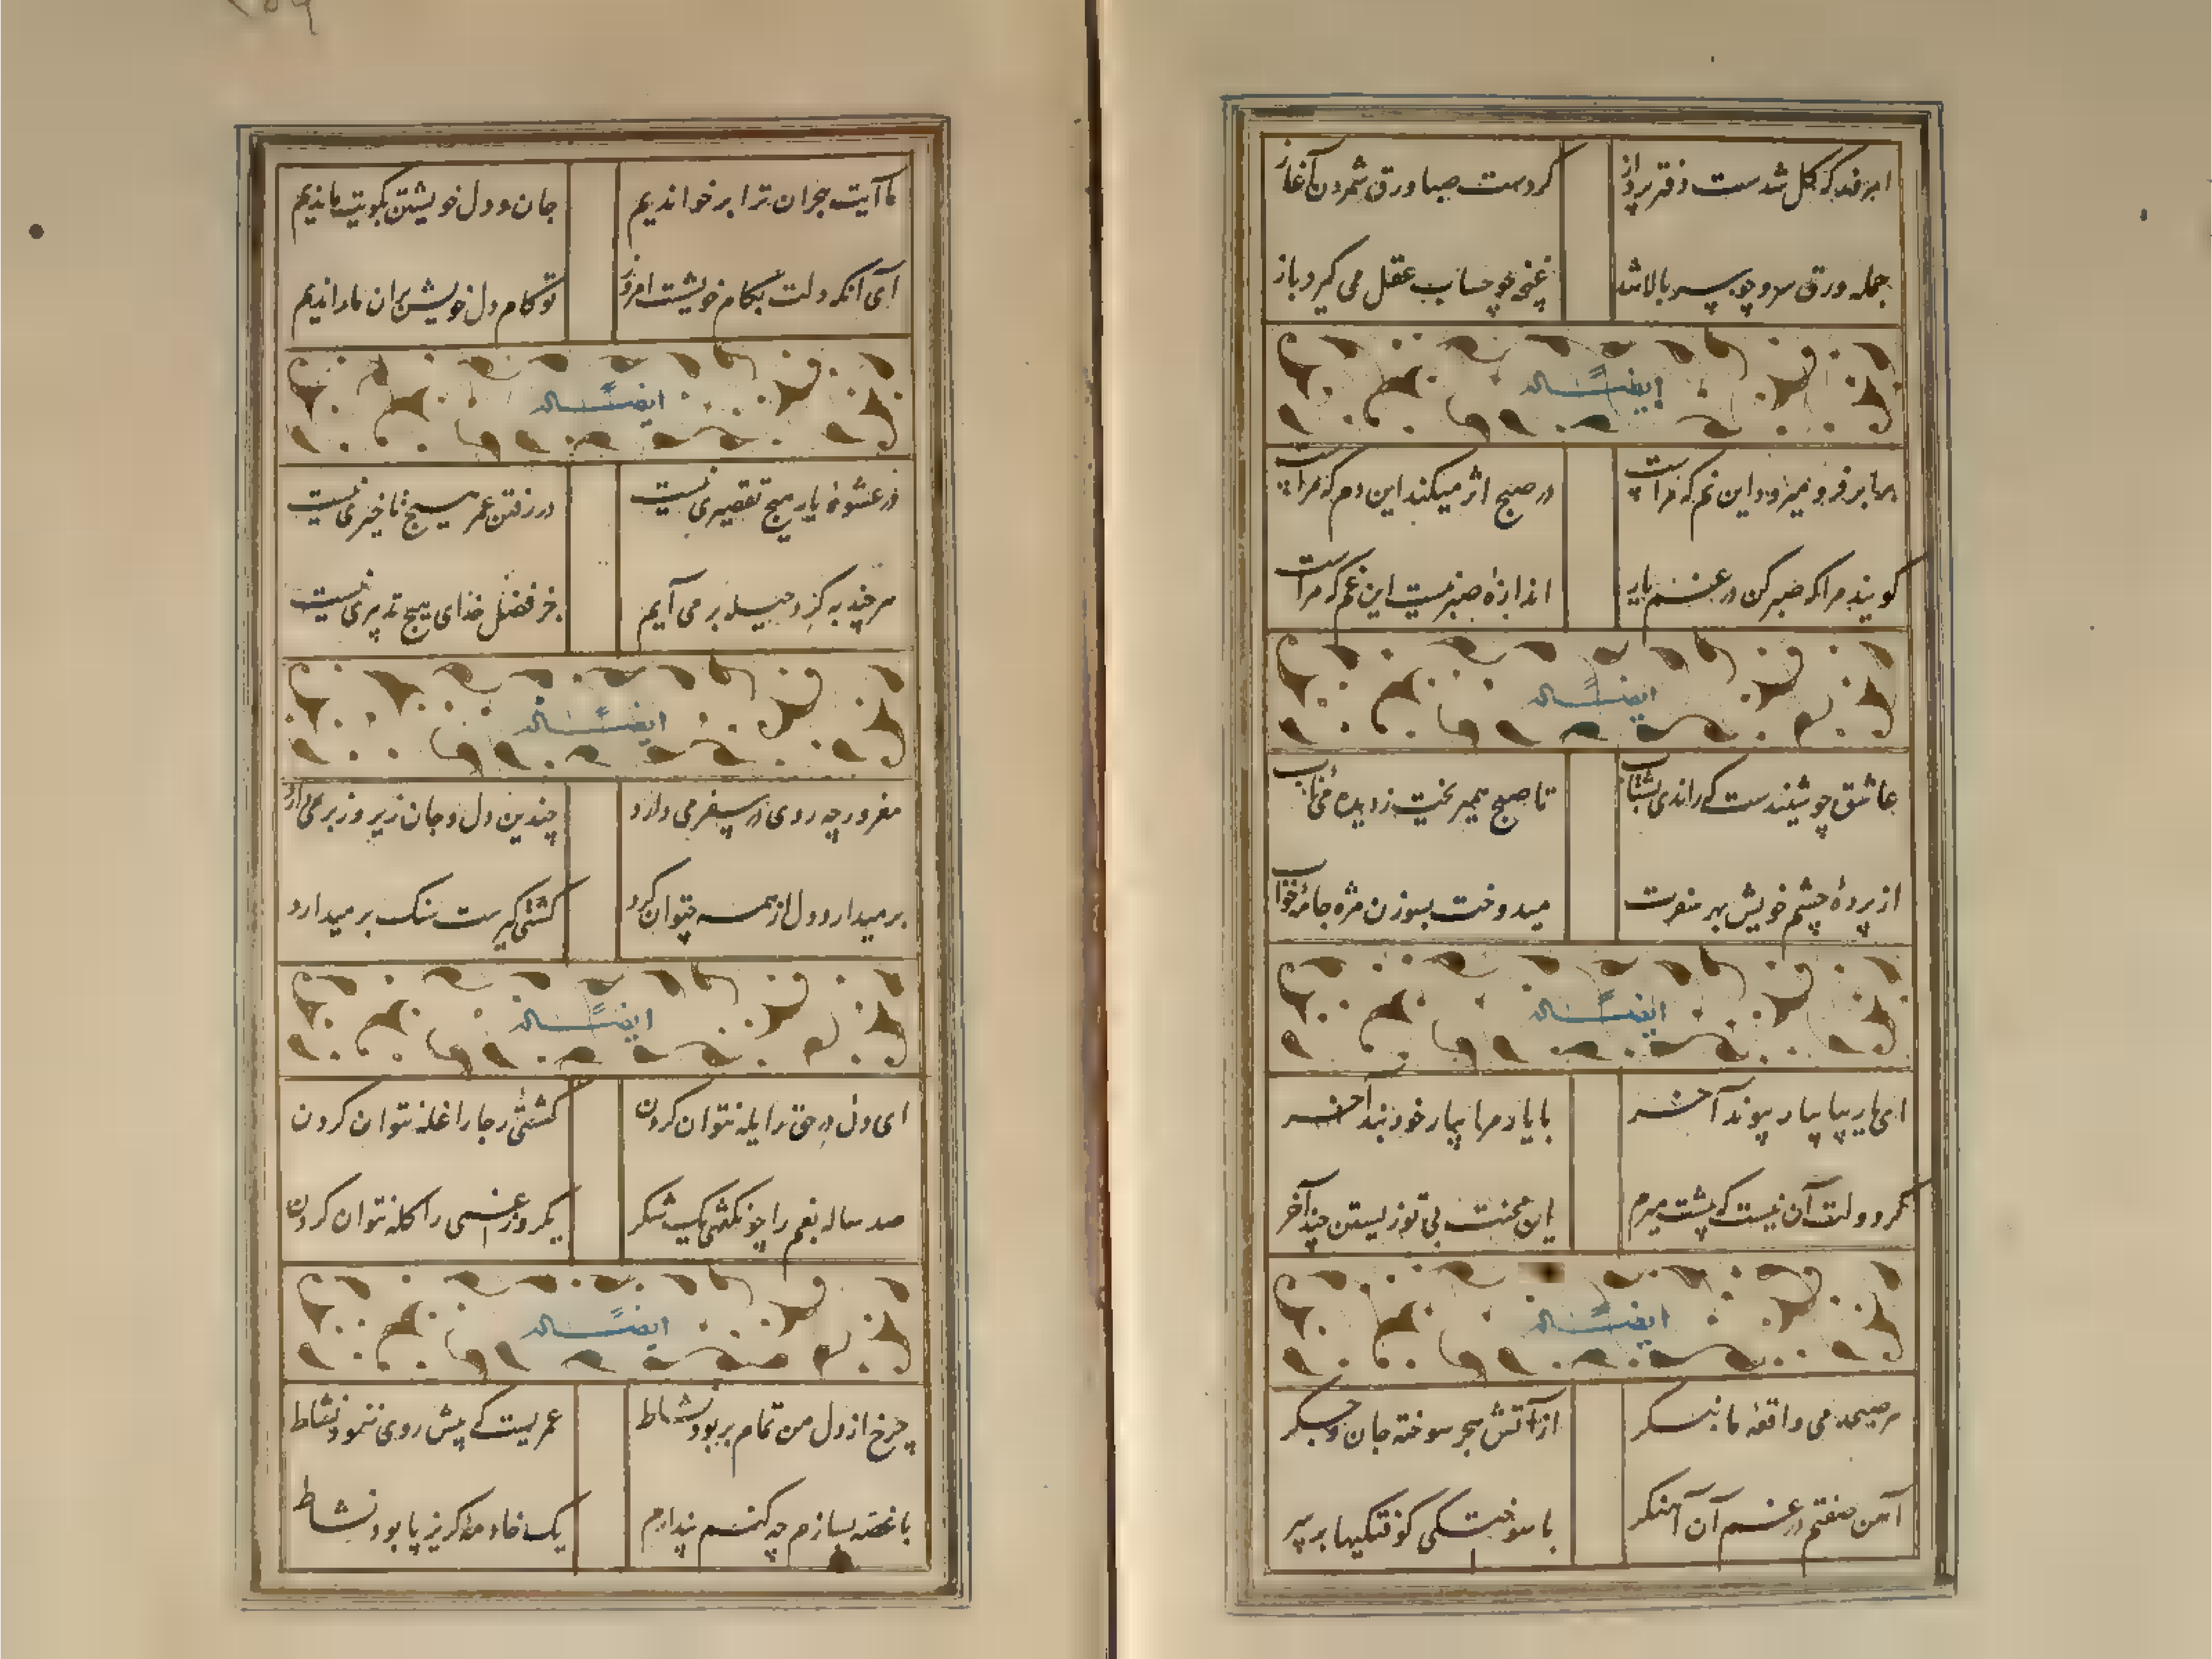 امروز که گل شدست دفتر پرداز
کردست صبا ورق شمردن آغاز
جمله ورق سرو چو سر بالا شد
غنچه چو حساب عقل می گیرد باز
ایضاً له
با ابر فرو میرود این نم که مراست
در صبح اثر میکند این دم که مراست
کویند مرا که صبر کن در غم یار
اندازه صبر نیست این غم که مراست
ایضاً له
عاشق چو شنیدست که راندی بشتاب
تا صبح همی ریخت ز دیده خوناب
از پردهٔ چشم خویش بهر سفرت
میدوخت بسوزن مژه جامهٔ خواب
ایضاً له
ای یار بیا بیار پیوند آخر
با یاد مرا بیار خود بند آخر
کر دولت آن نیست که پیشت میرم
این محنت بی تو زیستن چند آخر
ایضاً له
در صیحدمی واقعهٔ ما بنکر
از آتش هجر سوخته جان و جکر
آهن صفتم در غم آن آهنکر
با سوختکی کوفتکیها بر سر
ما آیت هجران ترا بر خواندیم
جان و دل خویشتن بکویت ماندیم
ای آنکه دلت بکام خویشست امروز
تو کام دل خویش بران ما راندیم
ایضاً له
در عشوهٔ یار هیچ تقصیری نیست
در رفتن عمر هیچ تاخیری نیست
هر چند به کرد حیله بر می آیم
جز فضل خدای هیچ تدبیری نیست
ایضاً له
مغرور چه روی در سفر می دارد
چندین دل و جان زیر و زبر می دارد
بر میدارد دل از همه چتوان کرد
کشتی کیرست سنک بر میدارد
ایضاً له
ای دل در حق را یله نتوان کردن
کشتی رجا را غله نتوان کردن
صد ساله نعم را چو نکفتی یک شکر
یکروزه غمی را کله نتوان کردن
ایضاً له
چرخ از دل من تمام بربود نشاط
عمریست که پیش روی ننمود نشاط
با غصه بسازم چه کنم پندارم
یک خادمهٔ کریزپا بود نشاط